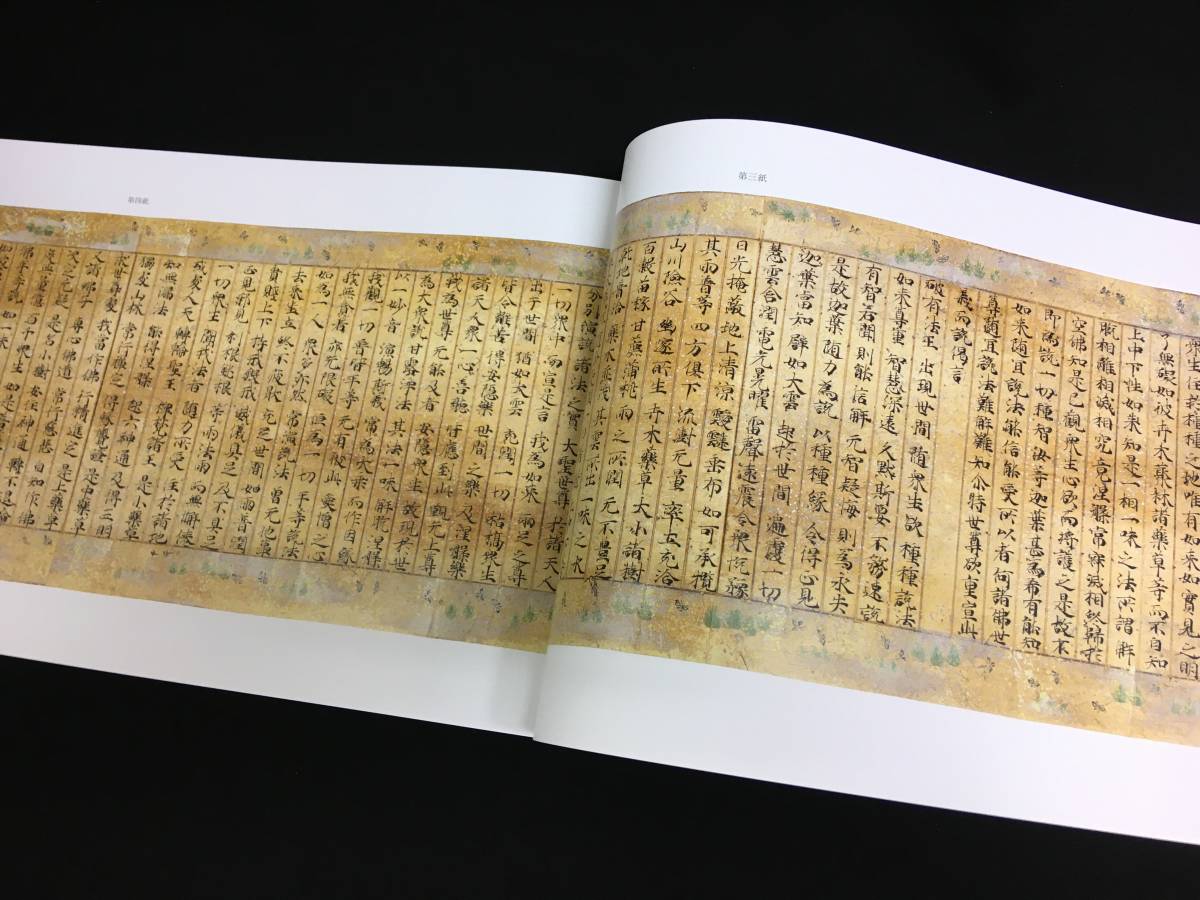 第三紙
衆生住於種種之地唯有如来如實見之明
了無礙如彼卉木藂林諸藥草等而不自知
上中下性如来知是一相一味之法所謂解
脱相離相滅相究竟涅槃常寂滅相終歸於
空佛知是已觀衆生心欲而將護之是故不
即為説一切種智汝等迦葉甚為希有能知
如来随宜説法能信能受所以者何諸佛世
尊随宜説法難解難知尒時世尊欲重宣此
義而説偈言
破有法王 出現世間 随衆生欲 種種説法
如来尊重 智慧深遠 久黙斯要 不務速説
有智若聞 則能信解 无智疑悔 則為永失
是故迦葉 随力為説 以種種緣 令得正見
迦葉當知 譬如大雲 起於世間 遍覆一切
慧雲含潤 電光晃曜 雷聲遠震 令衆悦豫
日光掩蔽 地上清涼 靉靆垂布 如可承攬
其雨普等 四方俱下 流澍无量 率土充洽
山川險谷 幽邃所生 卉木藥草 大小諸樹
百穀苗稼 甘蔗蒲萄 雨之所潤 无不豊足
乾地普洽 藥木並茂 其雲所出 一味之水
第四紙
分別演説 諸法之實 大聖世尊 於諸天人
一切衆中 而宣是言 我為如来 兩足之尊
出于世間 猶如大雲 充潤一切 枯槁衆生
皆令離苦 得安隱樂 世間之樂 及涅槃樂
諸天人衆 一心善聽 皆應到此 觀无上尊
我為世尊 无能及者 安隱衆生 故現於世
為大衆説 甘露淨法 其法一味 解脱涅槃
以一妙音 演暢斯義 常為大乘 而作因緣
我觀一切 普皆平等 无有彼此 愛憎之心
我無貪著 亦无限礙 恒為一切 平等説法
如為一人 衆多亦然 常演説法 曽无他事
去来坐立 終不疲厭 充足世間 如雨普潤
貴賤上下 持戒毀戒 威儀具足 及不具足
正見邪見 利根鈍根 等雨法雨 而無懈倦
一切衆生 聞我法者 随力所受 住於諸地
或處人天 轉輪聖王 釋梵諸王 是小藥草
知無漏法 能得涅槃 起六神通 及得三明
獨處山林 常行禪定 得緣覺證 是中藥草
求世尊處 我當作佛 行精進定 是上藥草
又諸佛子 專心佛道 常行慈悲 自知作佛
決定无疑 是名小樹 安住神通 轉不退輪
度無量億 百千衆生 如是菩薩
佛平等説 如一味雨